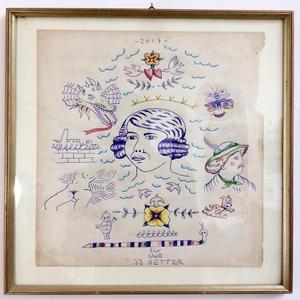 -2017-
für
UWE
JJ NETTER